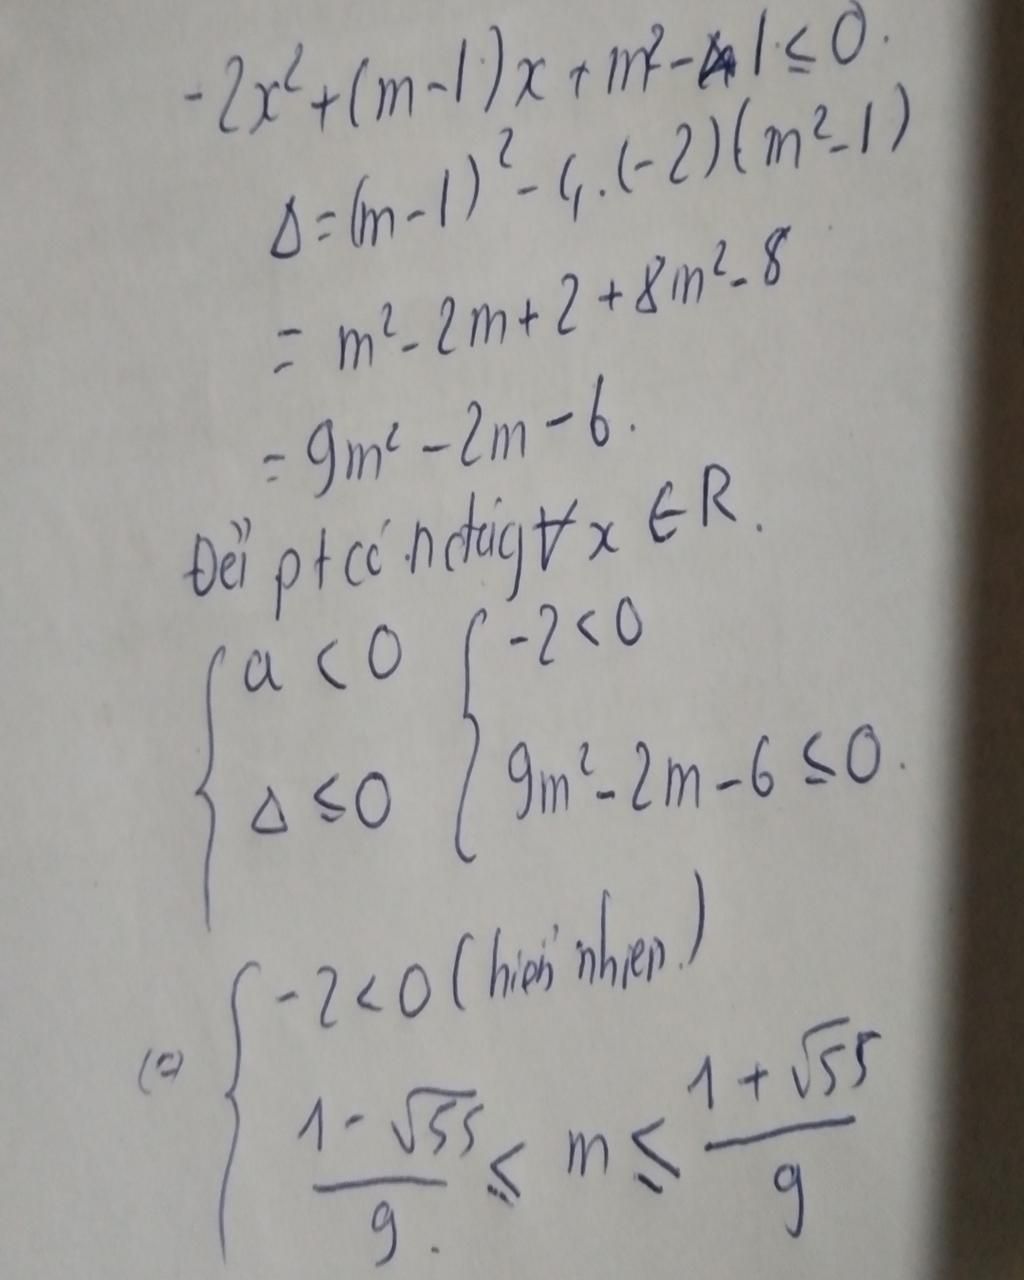 -2x² + (m-1)x + m² - 1 ≤ 0.
Δ = (m-1)² - 4.(-2)(m²-1)
= m² - 2m + 2 + 8m² - 8
= 9m² - 2m - 6.
Để pt có ∀ x ∈ R.
{ a < 0 { -2 < 0
Δ ≤ 0 9m² - 2m - 6 ≤ 0.
{ -2 < 0 (hiển nhiên)
(=) (1 - √55)/9 ≤ m ≤ (1 + √55)/9